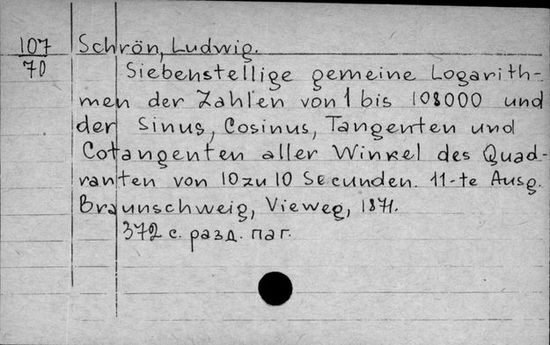 107
70
Schrön, Ludwig.
Siebenstellige gemeine Logarith-
men der Zahlen von 1 bis 108000 und
der Sinus, Cosinus, Tangenten und
Cotangenten aller Winkel des Quad-
ranten von 10 zu 10 Secunden. 11-te Ausg.
Braunschweig, Vieweg, 1871.
372 с. разд. паг.